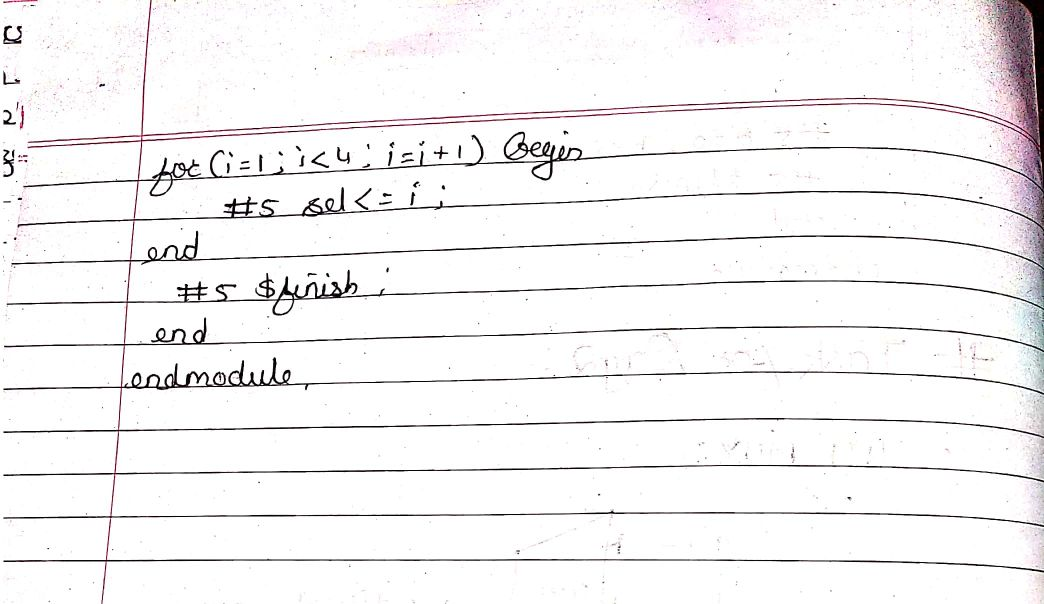 for (i=1; i<4; i=i+1) begin
#5 sel <= i;
end
#5 $finish;
end
endmodule,